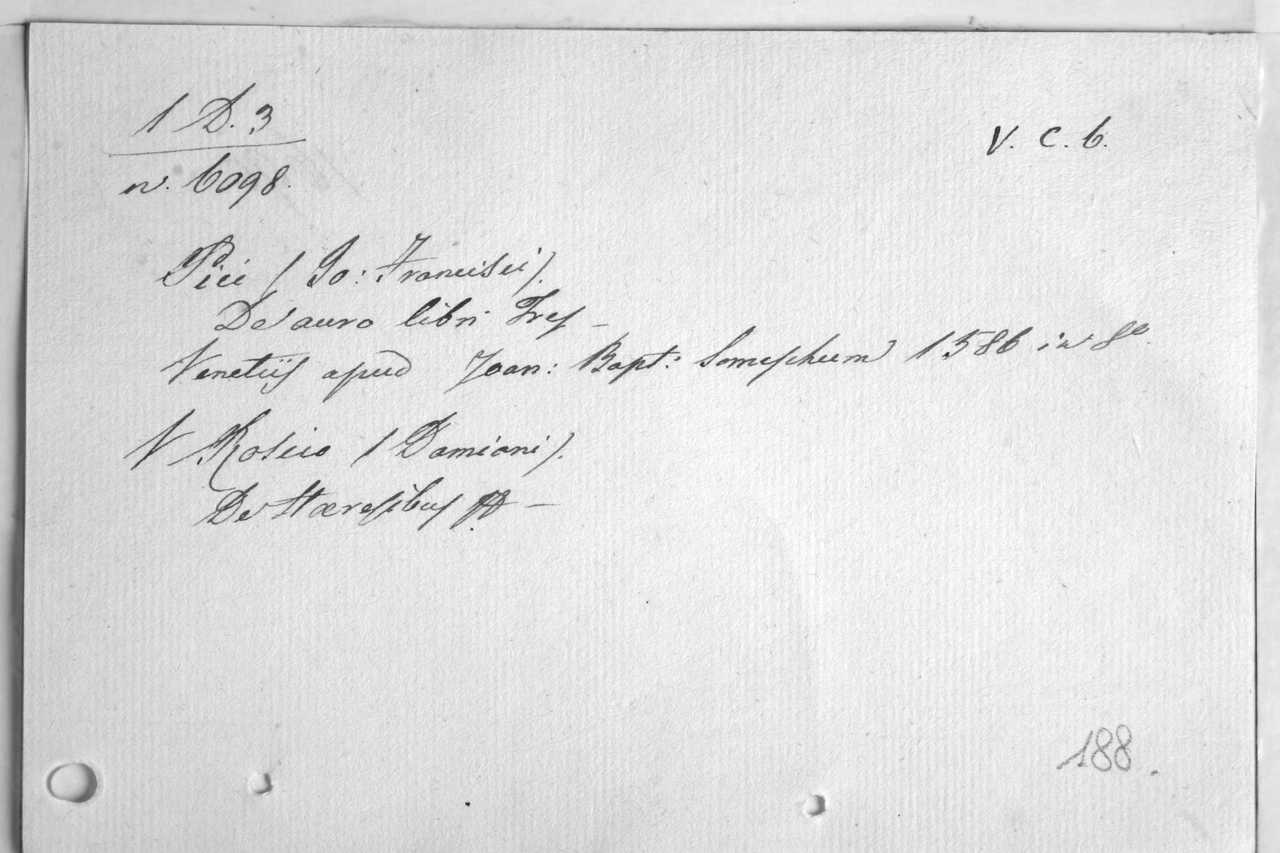 1 D. 3
n. 6098.
V. C. 6.
Pici (Jo: Francisci).
De auro libri Tres –
Venetiis apud Joan: Bapt: Somaschum 1586 in 8°.
V Roscio (Damiani).
De Hæresibus –
188.